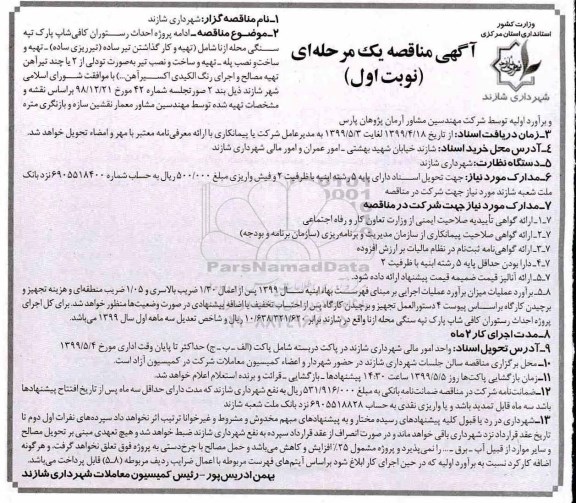 وزارت کشور
استانداری استان مرکزی
شهرداری شازند
آگهی مناقصه یک مرحله‌ای
(نوبت اول)
۱ـ نام مناقصه گزار: شهرداری شازند
۲ـ موضوع مناقصه ـ ادامه پروژه احداث رستوران کافی‌شاپ پارک تپه
سنگی محله ازنا شامل (تهیه و کار گذاشتن تیر ساده (تیرریزی ساده) ـ تهیه و
ساخت و نصب پله ـ تهیه و ساخت و نصب تیر به‌صورت تودلی از ۲ یا چند تیرآهن
تهیه مصالح و اجرای رنگ الکیدی اکسیر آهن...) با موافقت شورای اسلامی
شهر شازند ذیل بند ۲ صورتجلسه شماره ۴۲ مورخ ۹۸/۱۲/۲۱ براساس نقشه و
مشخصات تهیه شده توسط مهندسین مشاور معمار نقشین سازه و بازنگری متره
و برآورد اولیه توسط شرکت مهندسین مشاور آرمان پژوهان پارس
۳ـ زمان دریافت اسناد: از تاریخ ۱۳۹۹/۴/۱۸ لغایت ۱۳۹۹/۵/۳ به مدیرعامل شرکت یا پیمانکاری با ارائه معرفی‌نامه معتبر با مهر و امضاء تحویل خواهد شد.
۴ـ آدرس محل خرید اسناد: شازند خیابان شهید بهشتی ـ امور عمران و امور مالی شهرداری شازند
۵ـ دستگاه نظارت: شهرداری شازند
۶ـ مدارک مورد نیاز: جهت تحویل اسناد دارای پایه ۵ رشته ابنیه با ظرفیت ۲ و فیش واریزی مبلغ ۵۰۰/۰۰۰ ریال به حساب شماره ۶۹۰۵۵۱۸۴۰۰ نزد بانک
ملت شعبه شازند مورد نیاز جهت شرکت در مناقصه
۷ـ مدارک مورد نیاز جهت شرکت در مناقصه
۷ـ۱ـ ارائه گواهی تأییدیه صلاحیت ایمنی از وزارت تعاون کار و رفاه اجتماعی
۷ـ۲ـ ارائه گواهی صلاحیت پیمانکاری از سازمان مدیریت و برنامه‌ریزی (سازمان برنامه و بودجه)
۷ـ۳ـ ارائه گواهی‌نامه ثبت‌نام در نظام مالیات بر ارزش افزوده
۷ـ۴ـ دارا بودن حداقل پایه ۵ رشته ابنیه با ظرفیت ۲
۷ـ۵ـ ارائه آنالیز قیمت ضمیمه قیمت پیشنهاد ارائه داده شود.
۵ـ۸ـ برآورد عملیات میزان برآورد عملیات اجرایی بر مبنای فهرست بهاء ابنیه سال ۱۳۹۹ پس از اعمال ۱/۳۰ ضریب بالاسری و ۱/۰۵ ضریب منطقه‌ای و هزینه تجهیز و
برچیدن کارگاه براساس پیوست ۴ دستورالعمل تجهیز و برچیدن کارگاه پس از احتساب تخفیف یا اضافه پیشنهادی در صورت وضعیت‌ها منظور خواهد شد. برای کل اجرای
پروژه احداث رستوران کافی شاپ پارک تپه سنگی محله ازنا واقع در شازند برابر ۱۰/۶۳۸/۳۲۱/۶۲۰ ریال و شاخص تعدیل سه ماهه اول سال ۱۳۹۹ می‌باشد.
۸ـ مدت اجرای کار ۲ ماه
۹ـ آدرس تحویل اسناد: واحد امور مالی شهرداری شازند در پاکت دربسته شامل پاکت (الف ـ ب ـ ج) حداکثر تا پایان وقت اداری مورخ ۱۳۹۹/۵/۴
۱۰ـ محل برگزاری مناقصه سالن جلسات شهرداری شازند در حضور شهردار و اعضاء کمیسیون معاملات شرکت در کمیسیون آزاد است.
۱۱ـ زمان بازگشایی پاکت‌ها روز ۱۳۹۹/۵/۵ ساعت ۱۴:۳۰ پیشنهادها ـ بازگشایی ـ قرائت و برنده استعلام اعلام خواهد شد.
۱۲ـ ضمانت‌نامه شرکت در مناقصه ضمانت‌نامه بانکی به مبلغ ۵۳۱/۹۱۶/۰۰۰ ریال به نفع شهرداری شازند که مدت دارای حداقل سه ماه پس از تاریخ افتتاح پیشنهادها
باشد سه ماه قابل تمدید باشد و یا واریزی نقدی به حساب ۶۹۰۵۵۱۸۸۲۸ نزد بانک ملت شعبه شازند
۱۳ـ شهرداری در رد یا قبول کلیه پیشنهادهای رسیده مختار و به پیشنهادهای مبهم مخدوش و مشروط و غیرخوانا ترتیب اثر نخواهد داد سپرده‌های نفرات اول دوم تا
تاریخ عقد قرارداد نزد شهرداری باقی خواهد ماند و در صورت انصراف از عقد قرارداد سپرده به نفع شهرداری شازند ضبط خواهد شد و هیچ تعهدی مبنی بر تحویل مصالح
و سایر موارد از قبیل آب ـ برق ... را نمی‌پذیرد و پروژه مشمول ۲۵٪ افزایش و کاهش می‌باشد و حمل مصالح با چرخ‌دستی به پروژه فوق تعلق نخواهد گرفت. و هر گونه
اضافه کارکرد نسبت به برآورد اولیه که در حین اجرای کار ابلاغ شود براساس آیتم‌های فهرست مربوطه با اعمال ضرایب ردیف مربوطه (۵ـ۸) قابل پرداخت می‌باشد.
بهمن ادریس‌پور ـ رئیس کمیسیون معاملات شهرداری شازند
ParsNamadData